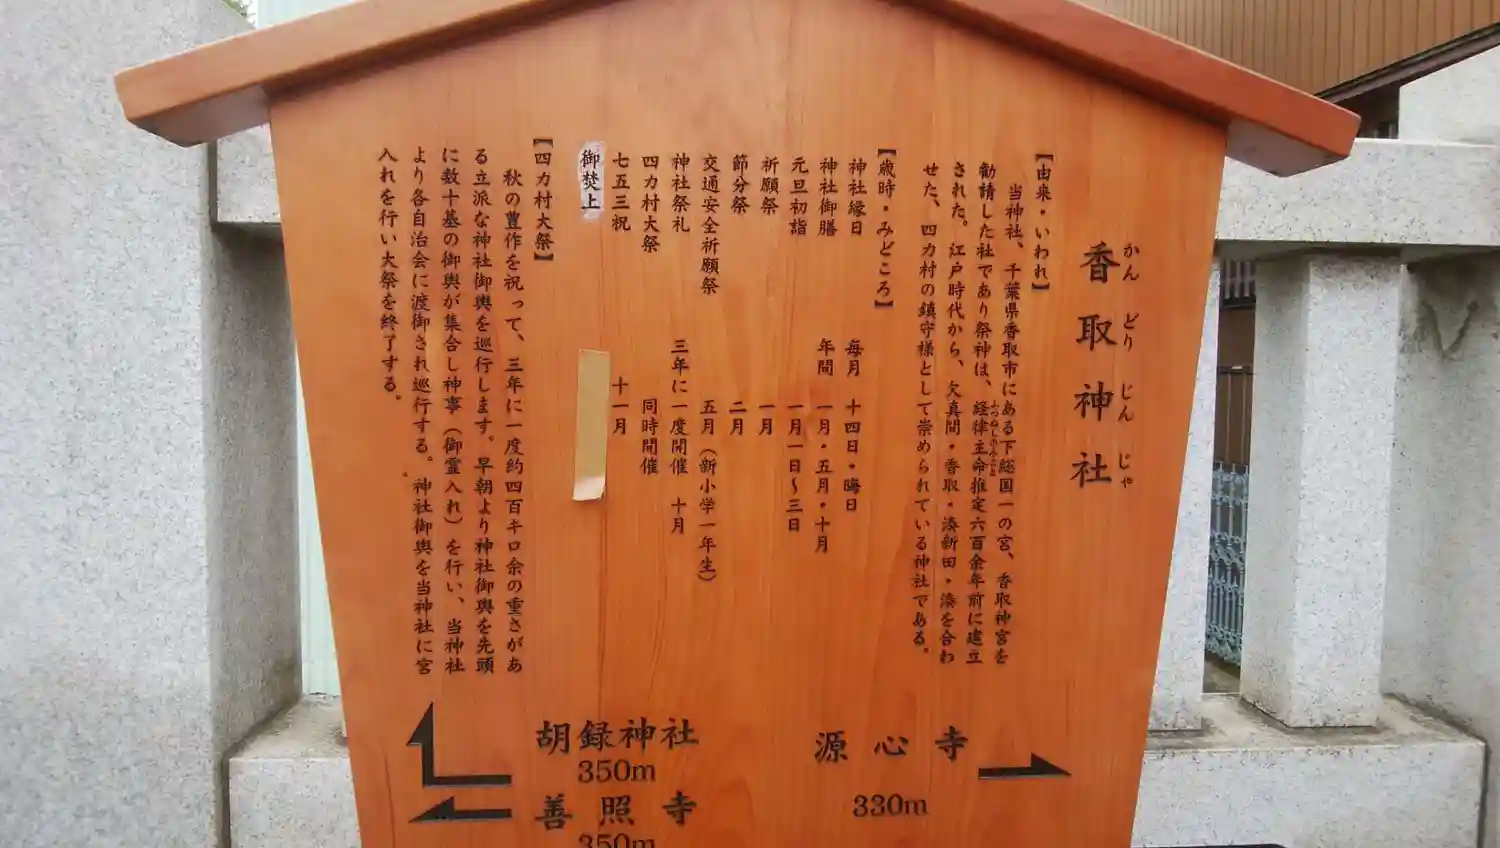 香取神社
かん どり じん じゃ
【由来・いわれ】
当神社、千葉県香取市にある下総国一の宮、香取神宮を
勧請した社であり祭神は、経律主命推定六百余年前に建立
ふつぬしのみこと
された。江戸時代から、欠真間・香取・湊新田・湊を合わ
せた、四カ村の鎮守様として崇められている神社である。
【歳時・みどころ】
神社縁日 毎月 十四日・晦日
神社御膳 年間 一月・五月・十月
元旦初詣 一月一日～三日
祈願祭 一月
節分祭 二月
交通安全祈願祭 五月（新小学一年生）
神社祭礼 三年に一度開催 十月
四カ村大祭 同時開催
七五三祝 十一月
御焚上
【四カ村大祭】
秋の豊作を祝って、三年に一度約四百キロ余の重さがあ
る立派な神社御輿を巡行します。早朝より神社御輿を先頭
に数十基の御輿が集合し神事（御霊入れ）を行い、当神社
より各自治会に渡御され巡行する。神社御輿を当神社に宮
入れを行い大祭を終了する。
源心寺
330m
胡録神社
350m
善照寺
350m